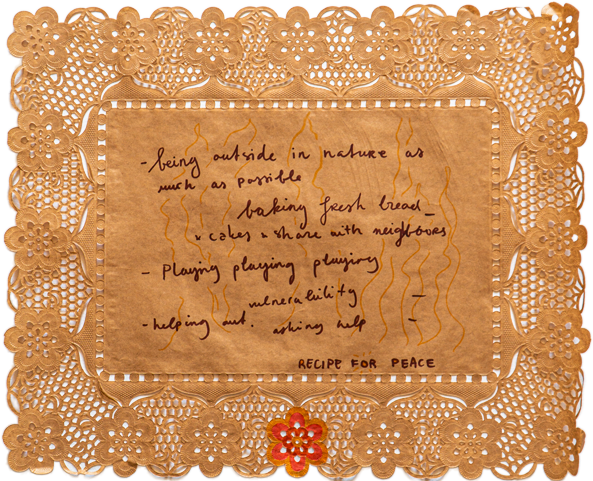 - being outside in nature as
much as possible
baking fresh bread –
& cakes & share with neighbours
- Playing playing playing
vulnerability –
- helping out. asking help –
RECIPE FOR PEACE